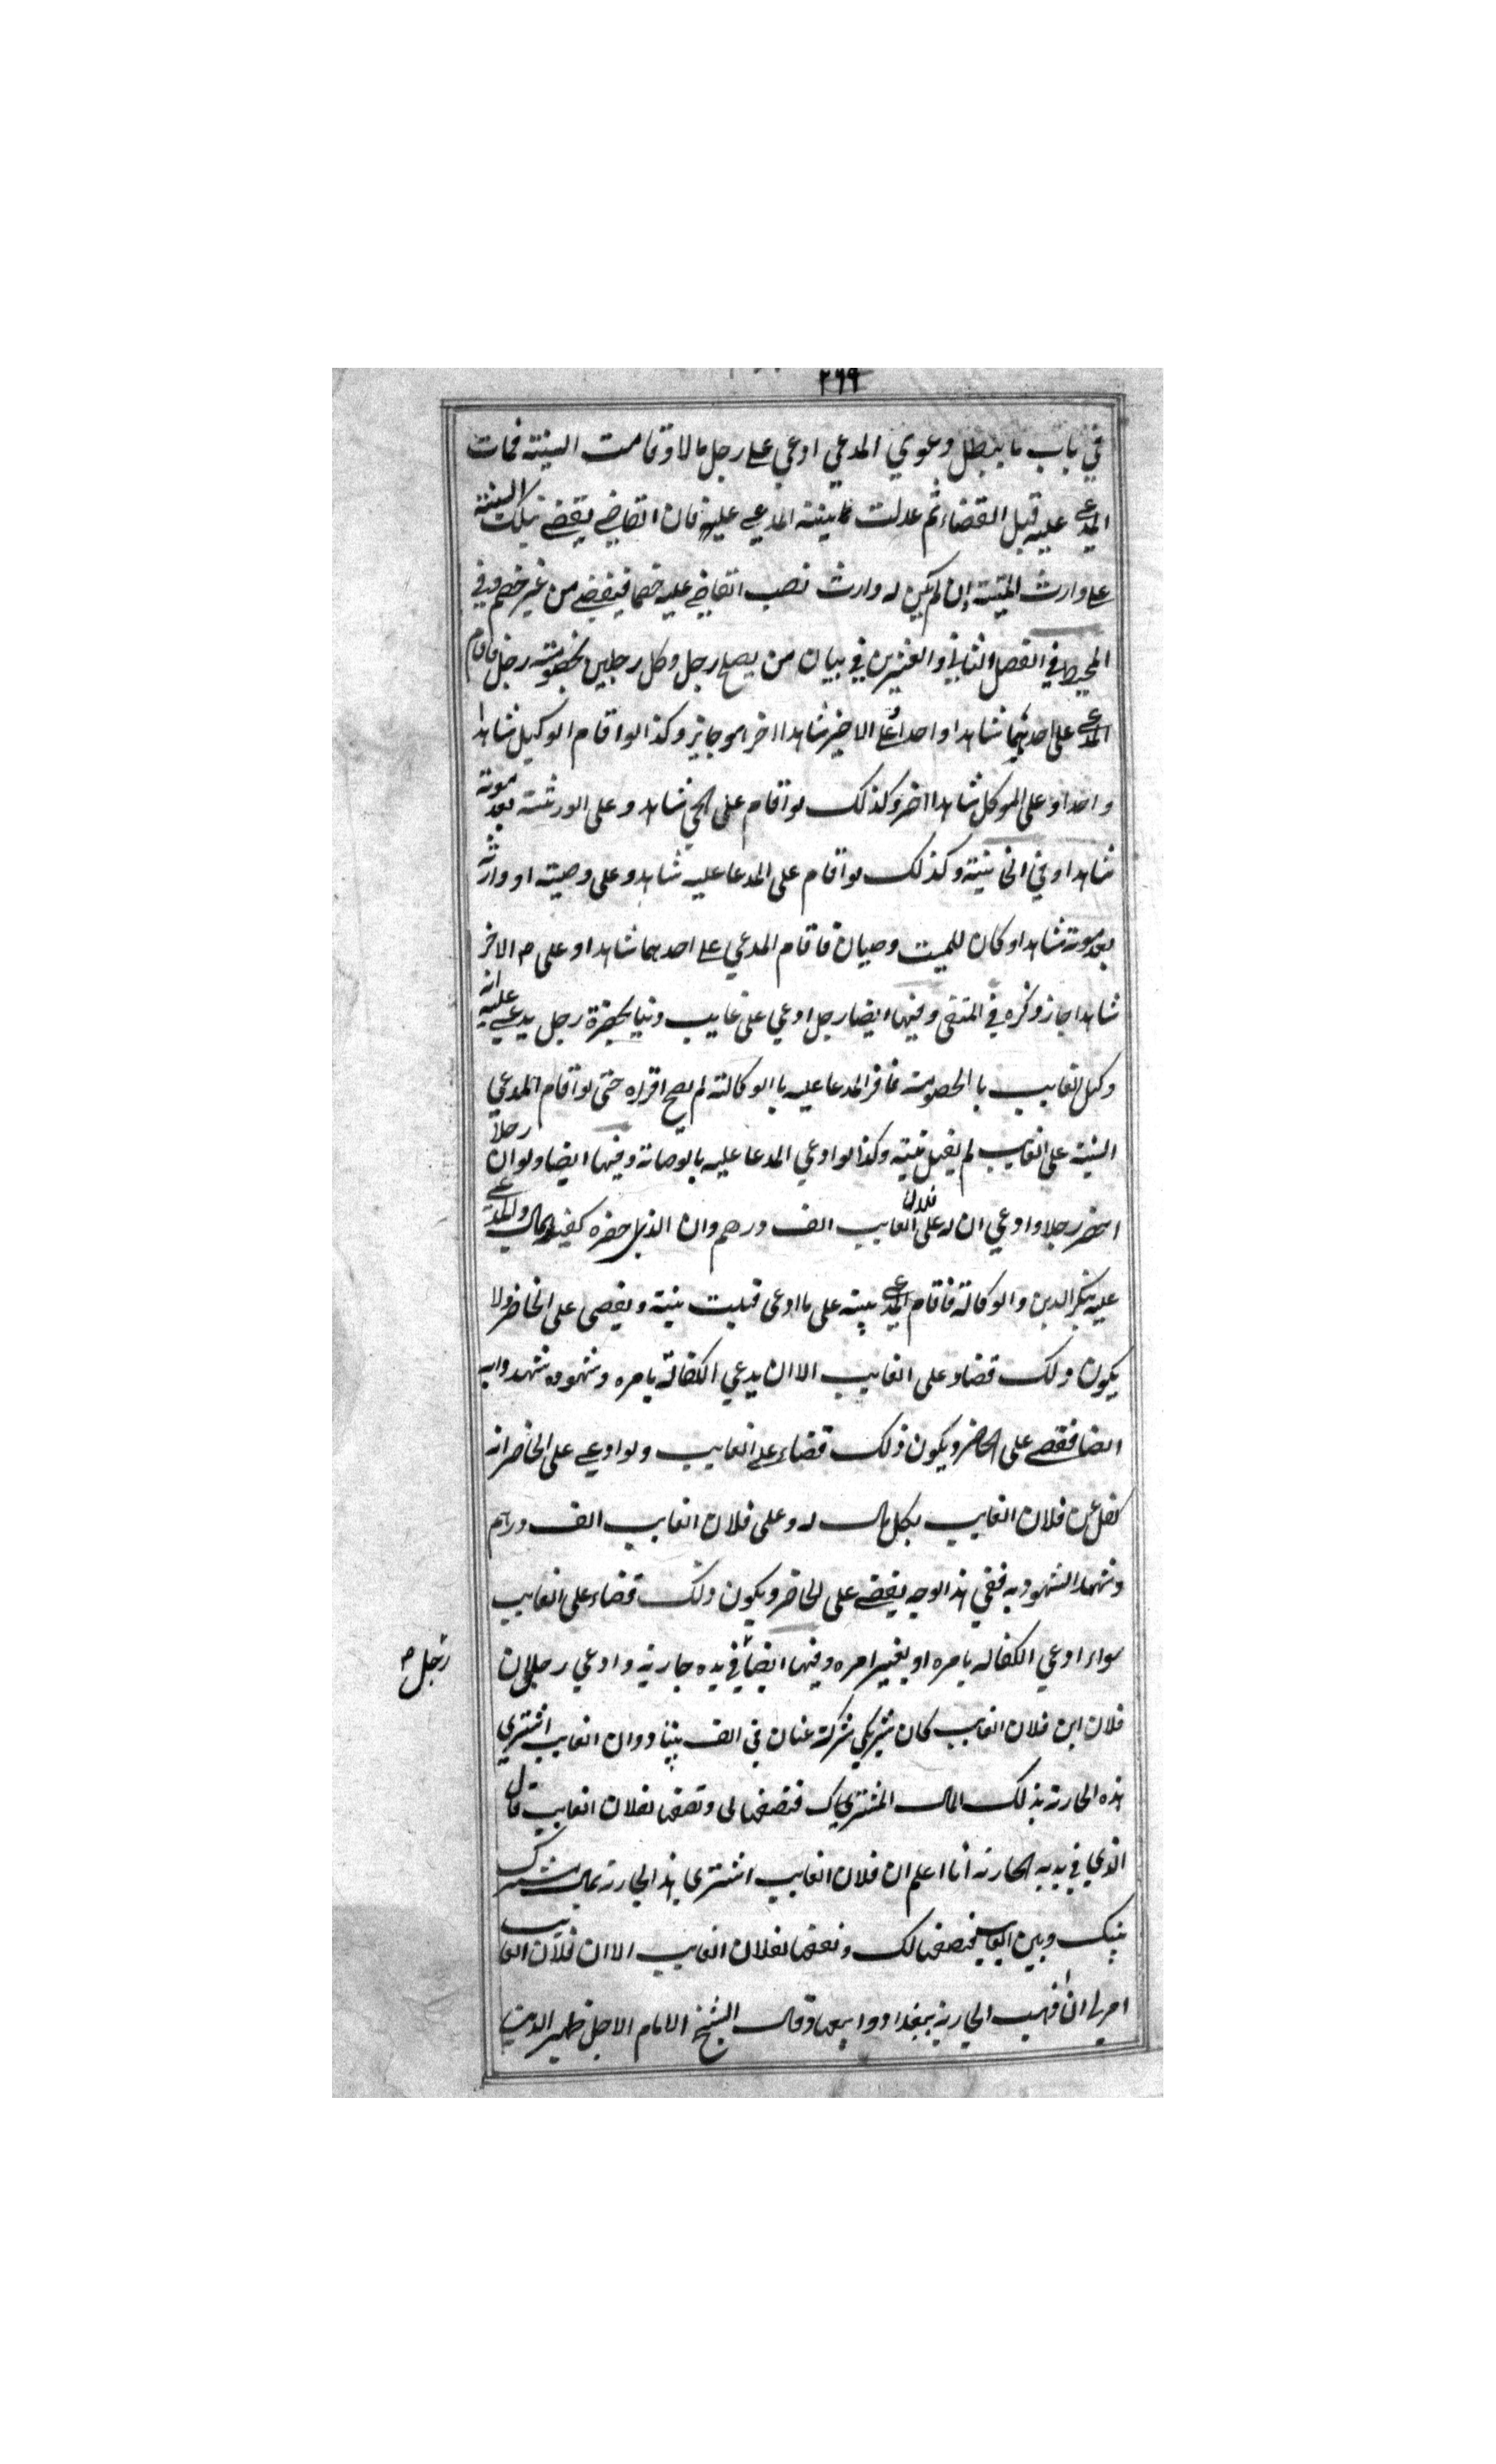 ٢٦٩
في باب ما يبطل دعوي المدعي ادعي علے رجل مالا وقامت البينة فمات
المدعے عليه قبل القضاء ثم عدلت بينة المدعے عليه فان القاضے يقضے بتلك البينة
علے وارث الميت ان لم يكن له وارث نصب القاضے عليه خصما فيقضے من غير خصم وفي
المحيط في الفصل الثاني والعشرين في بيان من يصلح رجل وكل رجلين بخصومة رجل فاقام
المدعے على احدهما شاهدا واحدا وعلے الاخر شاهدا اخر هو جايز وكذا لو اقام الوكيل شاهدا
واحدا وعلى الموكل شاهدا اخر وكذلك لو اقام على الحي شاهد وعلى الورثة بعد موته
شاهدا وفي الخانية وكذلك لو اقام على المدعا عليه شاهد وعلى وصيته او وارثه
بعد موته شاهدا وكان للميت وصيان فاقام المدعي علے احدهما شاهدا وعلى الاخر
شاهدا جاز ذكره في المنتقى وفيها ايضا رجل ادعي على غايب دينا بحضرة رجل يدعے عليه انه
وكيل الغايب بالخصومة فاقر المدعا عليه باالوكالة لم يصح اقراره حتى لو اقام المدعي
البينة على الغايب لم يقبل بينته وكذا لو ادعي المدعا عليه بالوصاية وفيها ايضا ولو ان رجلا
احضر رجلا وادعي ان له على فلان الغايب الف درهم وان الذي حضره كفيل بالمال والمدعے
عليه ينكر الدين والوكالة فاقام المدعے بينة على ما ادعى قبلت بينة ويقضى على الحاضر ولا
يكون ذلك قضاء على الغايب الا ان يدعي الكفالة بامره وشهوده شهدوا به
ايضا فقضے على الحاضر ويكون ذلك قضاء علے الغايب ولو ادعے على الحاضر انه
كفل عن فلان الغايب بكل مال له وعلى فلان الغايب الف درهم
وشهد الشهود به ففي هذا الوجه يقضے على الحاضر ويكون ذلك قضاء على الغايب
سواء ادعي الكفالة بامره او بغير امره وفيها ايضا في يده جارية وادعي رجل ان
رجل
فلان ابن فلان الغايب كان شريكي شركة عنان في الف دينار وان الغايب اشتري
هذه الجارية بذلك المال المشترك فنصفها لى ونصفها لفلان الغايب قال
الذي في يديه الجارية انا اعلم ان فلان الغايب اشترى هذه الجارية بمال مشترك
بينك وبين الغايب فنصفها لك ونصفها لفلان الغايب الا ان فلان الغايب
امرني ان اذهب الجارية ببغداد وابيعها وقال الشيخ الامام الاجل ظهير الدين